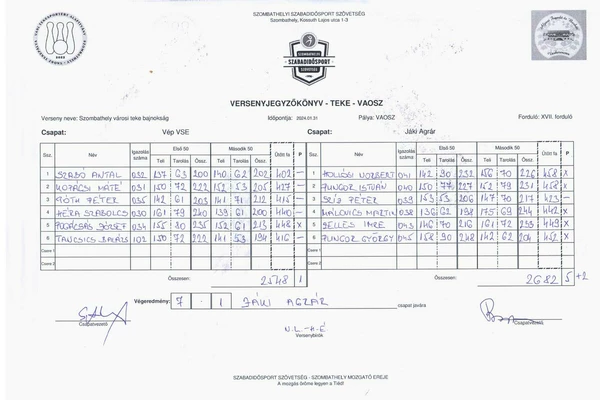 SZOMBATHELYI SZABADIDŐSPORT SZÖVETSÉG
Szombathely, Kossuth Lajos utca 1-3
SZOMBATHELYI
SZABADIDŐSPORT
SZÖVETSÉG
VERSENYJEGYZŐKÖNYV - TEKE - VAOSZ
Verseny neve: Szombathely városi teke bajnokság Időpontja: 2024.01.31 Pálya: VAOSZ Forduló: XVII. forduló
Csapat: Vép VSE Csapat: Jáki Agrár
Ssz. Név Igazolás száma Első 50 Második 50 Ütött fa P Ssz. Név Igazolás száma Első 50 Második 50 Ütött fa P
Teli Tarolás Össz. Teli Tarolás Össz. Teli Tarolás Össz. Teli Tarolás Össz.
1 SZABÓ ANTAL 032 137 63 200 140 62 202 402 — 1 HOLLÓSI NORBERT 041 142 90 232 156 70 226 458 X
2 KOPÁCSI MÁTÉ 031 150 72 222 152 53 205 427 — 2 JUNGOR ISTVÁN 040 150 77 227 152 79 231 458 X
3 TÓTH PÉTER 035 142 61 203 141 71 212 415 — 3 PÉTER 039 153 53 206 147 70 217 423 —
4 HÉRA SZABOLCS 030 161 79 240 139 61 200 440 — 4 MARTIN 038 136 62 198 175 69 244 442 X
5 POGÁCSÁS JÓZSEF 034 155 80 235 152 61 213 448 X 5 SELLES IMRE 043 146 70 216 161 72 233 449 X
6 TANCSICS BALÁZS 102 150 72 222 141 53 194 416 — 6 JUNGOR GYÖRGY 045 158 90 248 142 62 204 452 X
Csere 1 Csere 1
Csere 2 Csere 2
Összesen: 2548 1 Összesen: 2682 5 +2
Végeredmény: 7 - 1 JÁKI AGRÁR csapat javára
Csapatvezető Csapatvezető
N.L.-K.É
Versenybírók
SZABADIDŐSPORT SZÖVETSÉG - SZOMBATHELY MOZGATÓ EREJE
A mozgás öröme legyen a Tiéd!